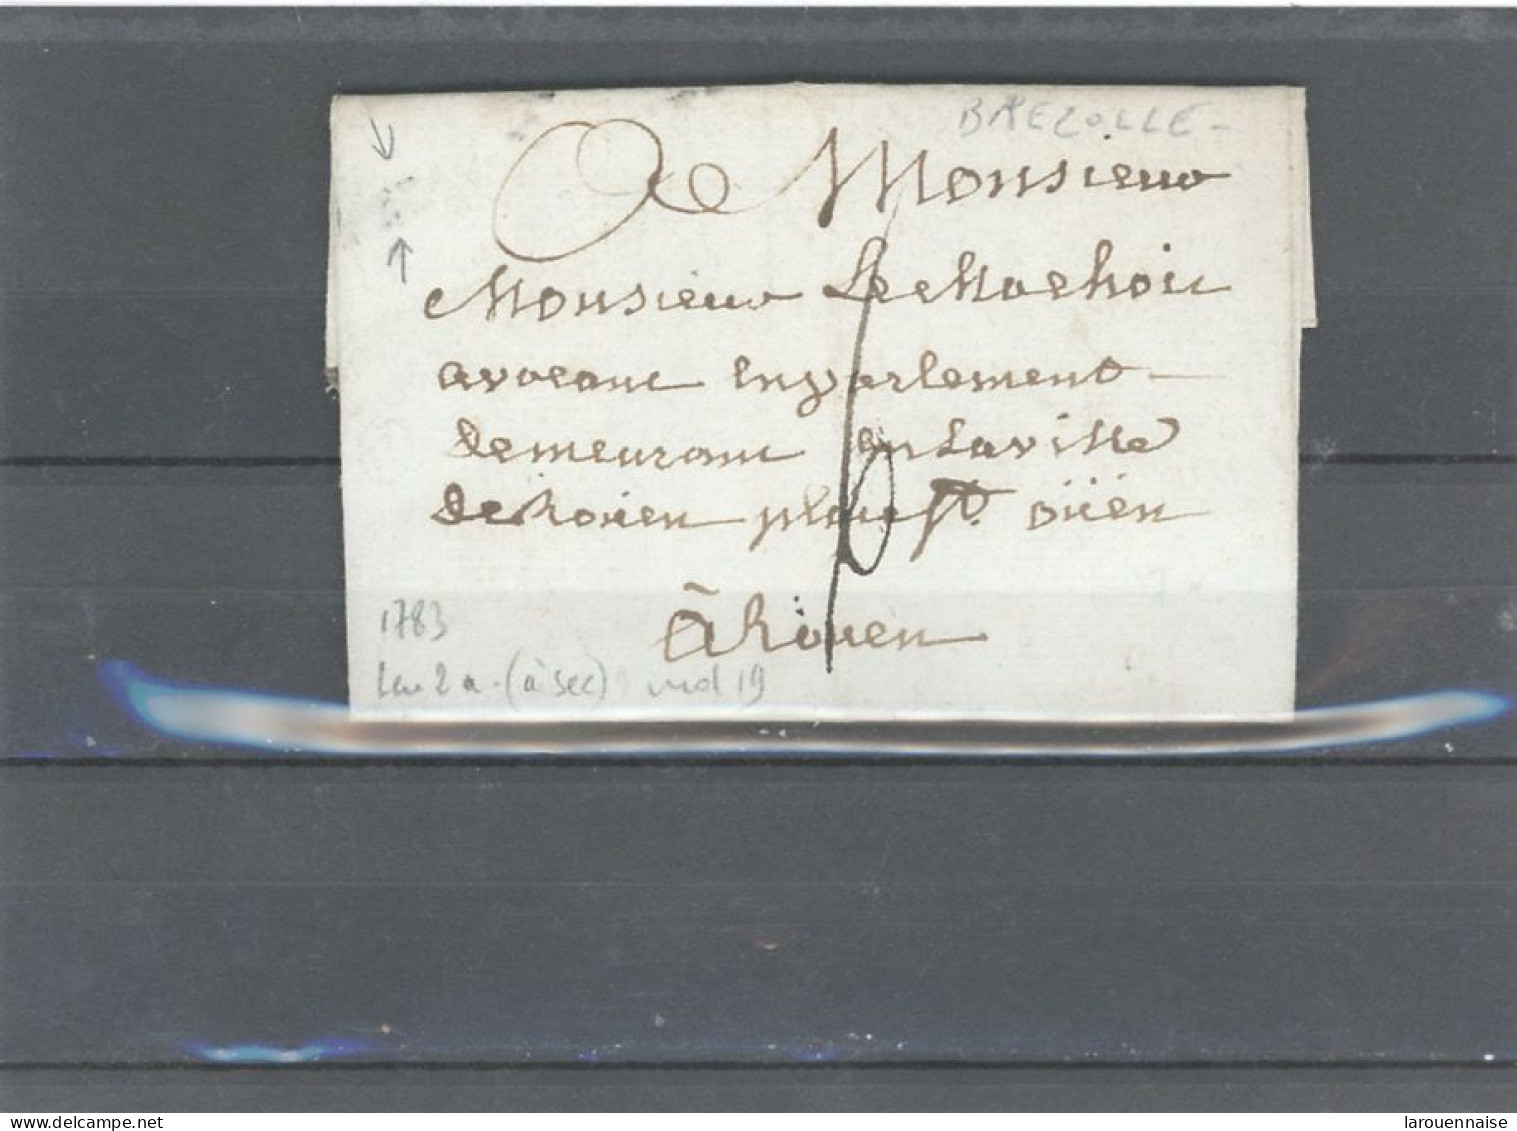 BREZOLLE -
A Monsieur
Monsieur Le Machois
avocant en parlement -
demeurant en La ville
de Roüen place St. oüen
à Roüen
1783
2 a. (à sec) ind 19
www.delcampe.net
larouennaise